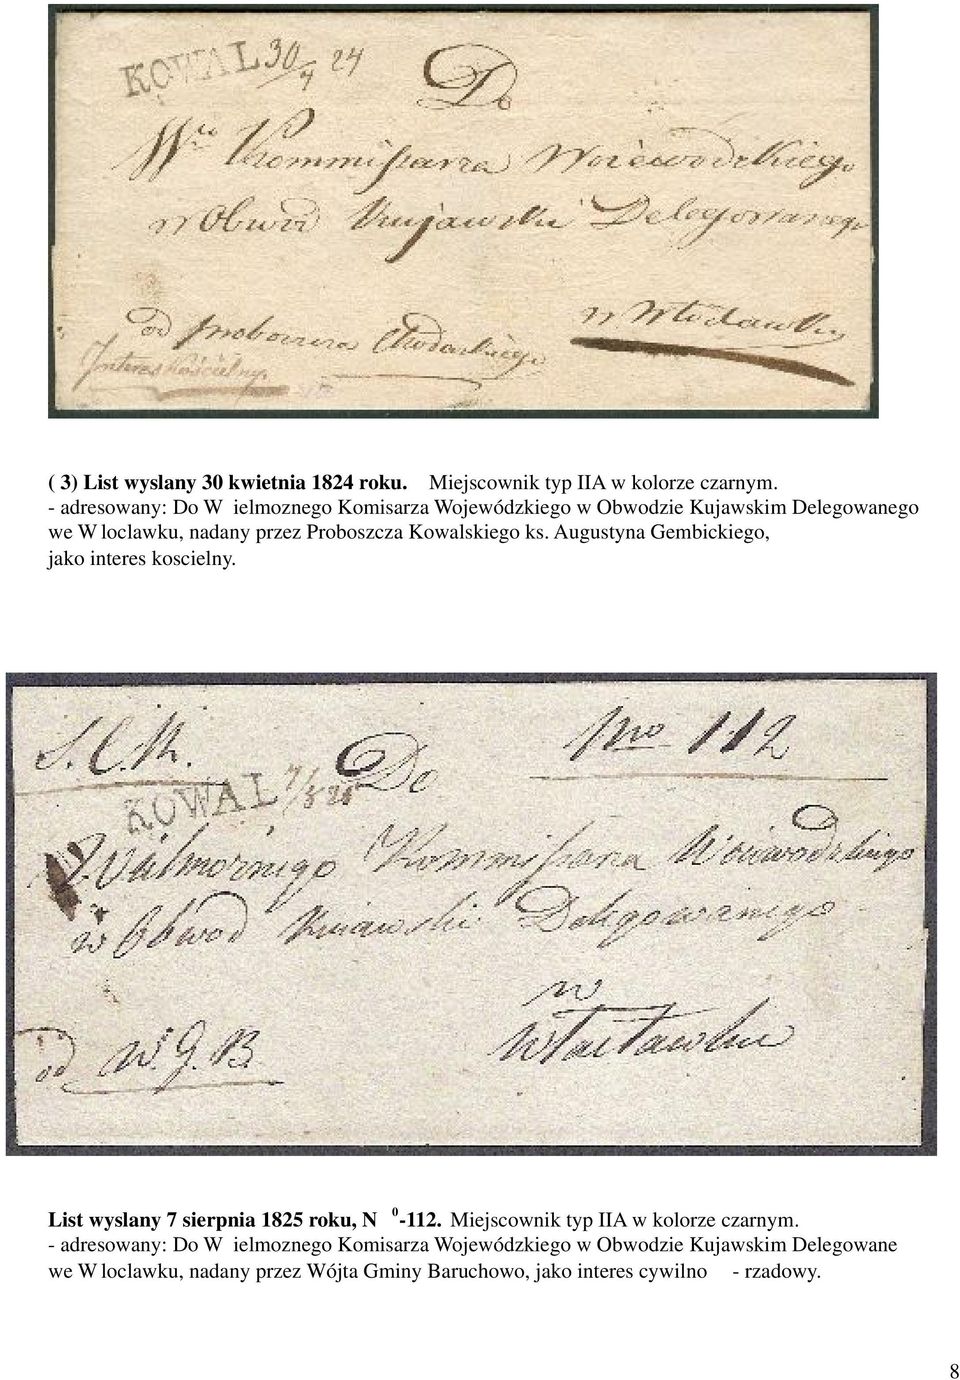 KOWAL 30/4 24
Do
Wo Kommissarza Woiewodzkiego
w Obwod Kujawski Delegowanego
w Włocławku
od proboszcza
Interes kościelny
( 3) List wyslany 30 kwietnia 1824 roku. Miejscownik typ IIA w kolorze czarnym.
- adresowany: Do W ielmoznego Komisarza Wojewódzkiego w Obwodzie Kujawskim Delegowanego
we W loclawku, nadany przez Proboszcza Kowalskiego ks. Augustyna Gembickiego,
jako interes koscielny.
S.C.R.
pro 112
KOWAL 7/8 25
Do
Kommissarza Woiewodzkiego
w Obwod Kuiawski Delegowanego
w
od W.G.B.
List wyslany 7 sierpnia 1825 roku, N 0 -112. Miejscownik typ IIA w kolorze czarnym.
- adresowany: Do W ielmoznego Komisarza Wojewódzkiego w Obwodzie Kujawskim Delegowane
we W loclawku, nadany przez Wójta Gminy Baruchowo, jako interes cywilno - rzadowy.
8